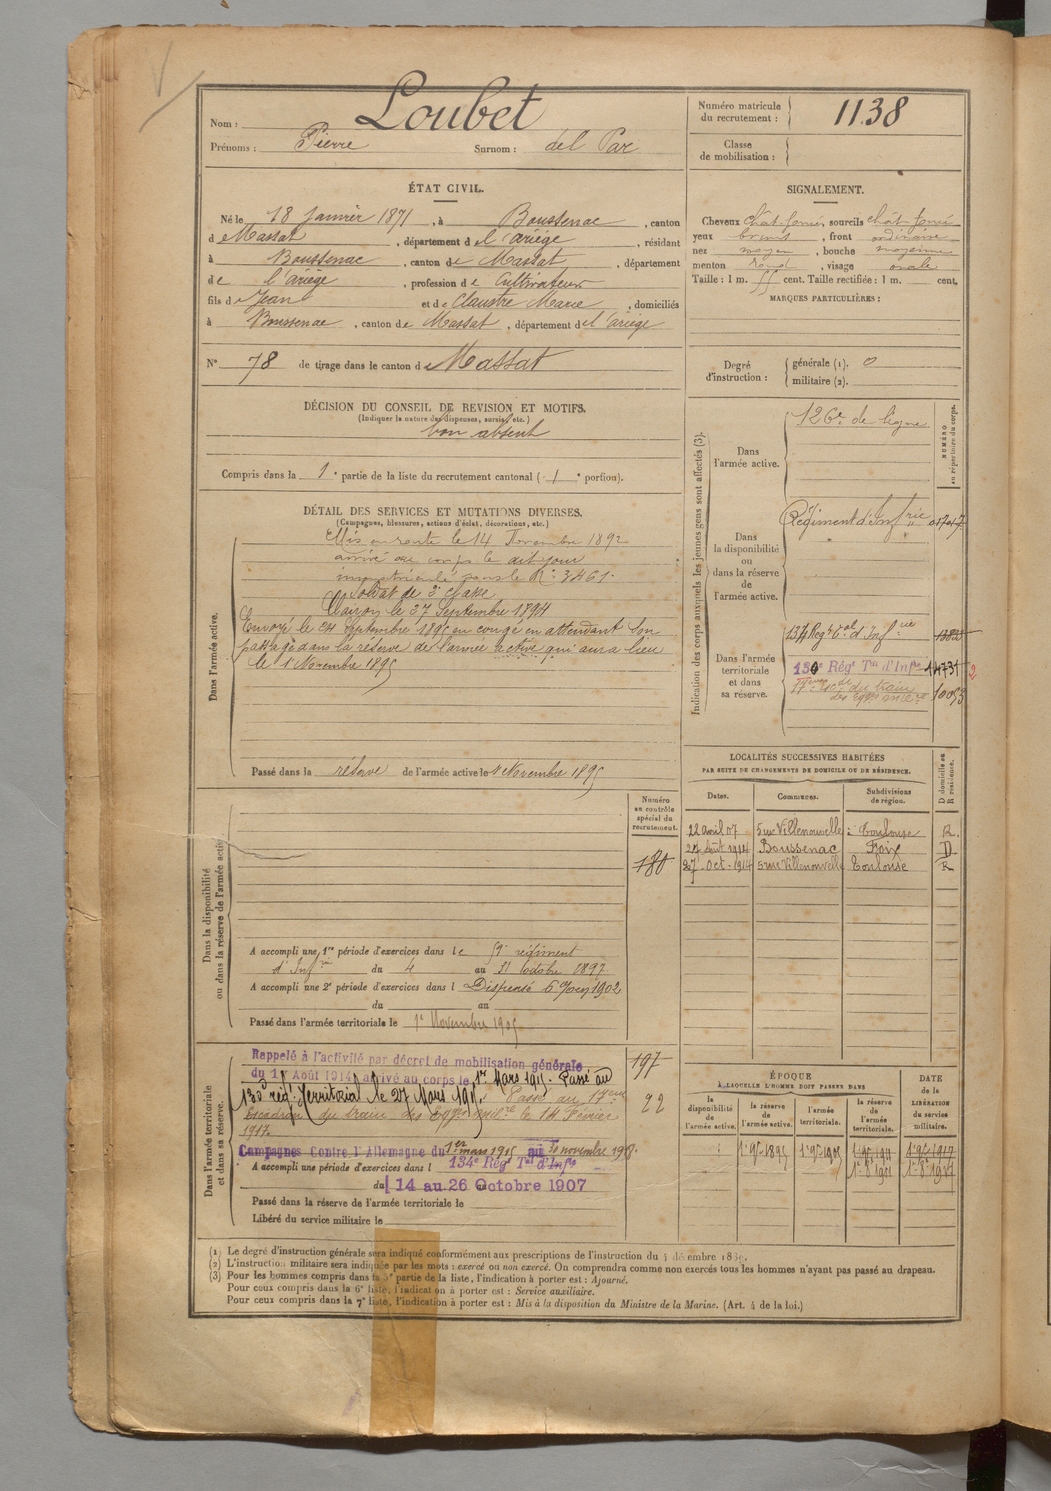 Nom : Loubet
Prénoms : Pierre Surnom : del Par
Numéro matricule du recrutement : 1138
Classe de mobilisation :
ÉTAT CIVIL.
Né le 18 Janvier 1871, à Boussenac, canton
de Massat, département de l'ariège, résidant
à Boussenac, canton de Massat, département
de l'ariège, profession de Cultivateur
fils de Jean et de Claustre Marie, domiciliés
à Boussenac, canton de Massat, département de l'ariège
N° 78 de tirage dans le canton de Massat
SIGNALEMENT.
Cheveux chât. foncé, sourcils chât. foncé
yeux bruns, front ordinaire
nez moyen, bouche moyenne
menton rond, visage ovale
Taille : 1 m. 55 cent. Taille rectifiée : 1 m. cent.
MARQUES PARTICULIÈRES :
Degré d'instruction : générale (1). 0
militaire (2).
DÉCISION DU CONSEIL DE REVISION ET MOTIFS.
(Indiquer la nature des dispenses, sursis, etc.)
bon absent
Compris dans la 1e partie de la liste du recrutement cantonal (1e portion).
DÉTAIL DES SERVICES ET MUTATIONS DIVERSES.
(Campagnes, blessures, actions d'éclat, décorations, etc.)
Dans l'armée active.
Mis en route le 14 Novembre 1892
arrivé au corps le dit jour
immatriculé sous le N° 3461.
Soldat de 2e classe
le 27 Septembre 1894
Envoyé le 24 Septembre 1895 en congé en attendant son
passage dans la réserve de l'armée active qui aura lieu
le 1er Novembre 1895
Passé dans la réserve de l'armée active le 1er Novembre 1895
Indication des corps auxquels les jeunes gens sont affectés (3).
NUMÉRO au répertoire du corps.
Dans l'armée active.
126e de ligne
Dans la disponibilité ou dans la réserve de l'armée active.
Régiment d'Infrie 01707
Dans l'armée territoriale et dans sa réserve.
134 Régt Tal d'Infrie
130e Régt Tal d'Infie 14731
17eme Eon du train des Eqges milres 10053
LOCALITÉS SUCCESSIVES HABITÉES
PAR SUITE DE CHANGEMENTS DE DOMICILE OU DE RÉSIDENCE.
Dates. Communes. Subdivisions de région. D domicile ou R résidence.
22 avril 07 5 rue Villenouvelle : Toulouse R.
27 Août 1914 Boussenac Foix D
27 Oct. 1914 5 rue Villenouvelle Toulouse R
Dans la disponibilité ou dans la réserve de l'armée active
Numéro au contrôle spécial du recrutement.
180
A accompli une 1re période d'exercices dans le 59e régiment
d'Infrie du 4 au 31 octobre 1897
A accompli une 2e période d'exercices dans l Dispensé 1902
du au
Passé dans l'armée territoriale le 1er Novembre 1905
Dans l'armée territoriale et dans sa réserve.
Rappelé à l'activité par décret de mobilisation générale
du 1er Août 1914, arrivé au corps le 1er Mars 1915. Passé au
130e rég. Territorial le 27 Mars 1915. Passé au 17eme
Escadron du train des Eqges milre le 14 Février
1917.
197
22
Campagnes Contre l'Allemagne du 1er mars 1915 au 30 novembre 1918.
A accompli une période d'exercices dans l 134e Régt Tal d'Infie
du 14 au 26 Octobre 1907
Passé dans la réserve de l'armée territoriale le
Libéré du service militaire le
ÉPOQUE
À LAQUELLE L'HOMME DOIT PASSER DANS
la disponibilité de l'armée active. la réserve de l'armée active. l'armée territoriale. la réserve de l'armée territoriale.
DATE de la LIBÉRATION du service militaire.
1er 9bre 1895 1er 9bre 1905 1er 9bre 1911 1er 9bre 1917
(1) Le degré d'instruction générale sera indiqué conformément aux prescriptions de l'instruction du 4 décembre 1889.
(2) L'instruction militaire sera indiquée par les mots : exercé ou non exercé. On comprendra comme non exercés tous les hommes n'ayant pas passé au drapeau.
(3) Pour les hommes compris dans la 5e partie de la liste, l'indication à porter est : Ajourné.
Pour ceux compris dans la 6e liste, l'indication à porter est : Service auxiliaire.
Pour ceux compris dans la 7e liste, l'indication à porter est : Mis à la disposition du Ministre de la Marine. (Art. 4 de la loi.)